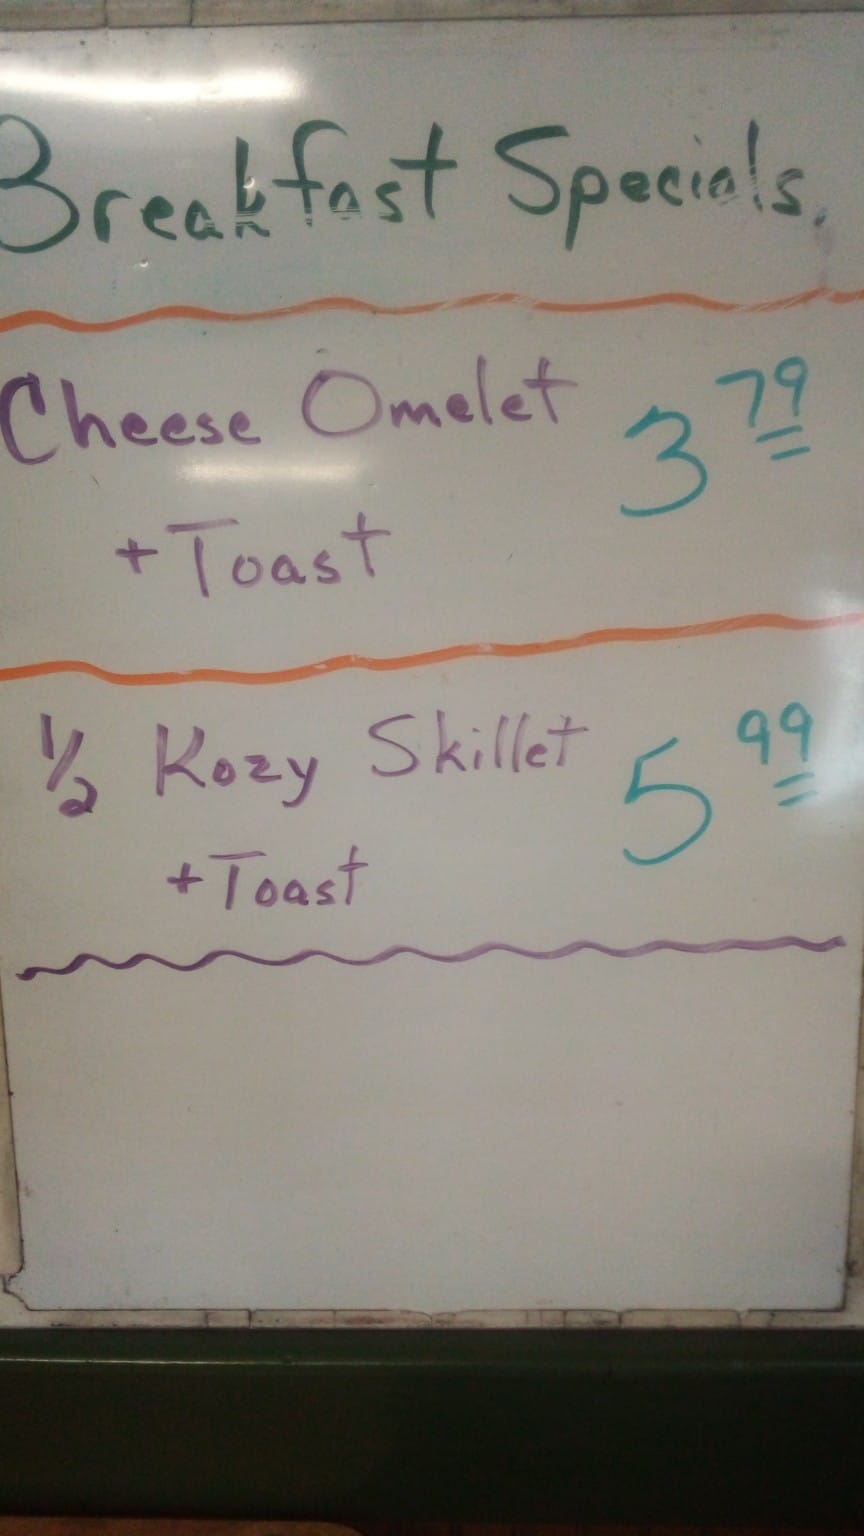 Breakfast Specials.
Cheese Omelet 3 79
+ Toast
1/2 Kozy Skillet 5 99
+ Toast